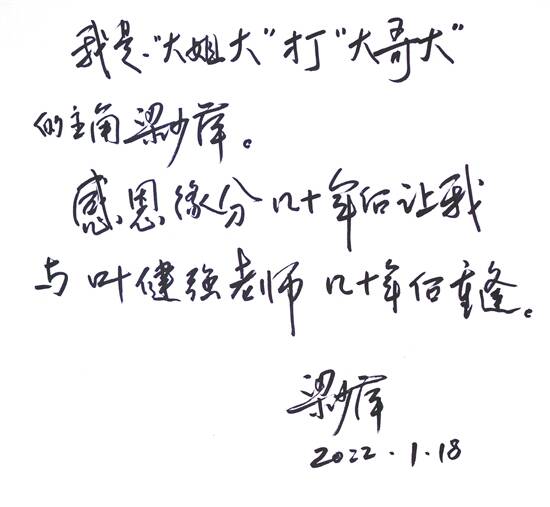 我是“大姐大”打“大哥大”
的主角梁妙萍。
感恩缘分几十年后让我
与叶健强老师几十年后重逢。
梁妙萍
2022.1.18